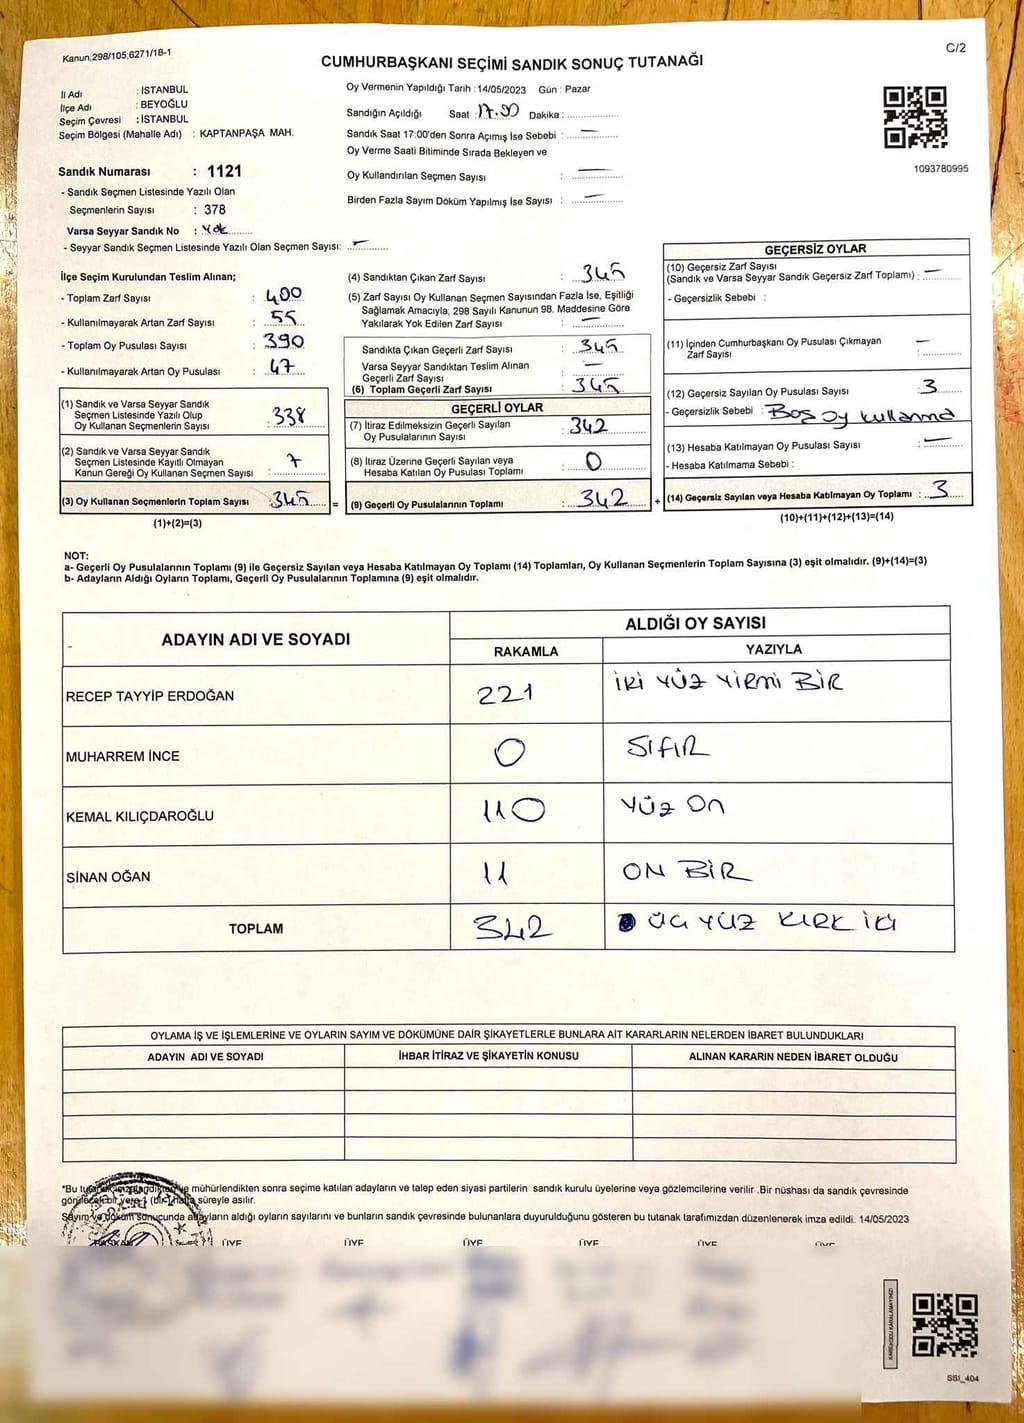 Kanun;298/105,6271/18-1
C/2
CUMHURBAŞKANI SEÇİMİ SANDIK SONUÇ TUTANAĞI
İl Adı : İSTANBUL
İlçe Adı : BEYOĞLU
Seçim Çevresi : İSTANBUL
Seçim Bölgesi (Mahalle Adı) : KAPTANPAŞA MAH.
Oy Vermenin Yapıldığı Tarih : 14/05/2023 Gün : Pazar
Sandığın Açıldığı Saat : 17.00 Dakika :
Sandık Saat 17:00'den Sonra Açımış İse Sebebi : —
Oy Verme Saati Bitiminde Sırada Bekleyen ve
Oy Kullandırılan Seçmen Sayısı : —
Birden Fazla Sayım Döküm Yapılmış İse Sayısı : —
1093780995
Sandık Numarası : 1121
- Sandık Seçmen Listesinde Yazılı Olan
Seçmenlerin Sayısı : 378
Varsa Seyyar Sandık No : Yok
- Seyyar Sandık Seçmen Listesinde Yazılı Olan Seçmen Sayısı: —
İlçe Seçim Kurulundan Teslim Alınan;
- Toplam Zarf Sayısı : 400
- Kullanılmayarak Artan Zarf Sayısı : 55
- Toplam Oy Pusulası Sayısı : 390
- Kullanılmayarak Artan Oy Pusulası : 47
(1) Sandık ve Varsa Seyyar Sandık
Seçmen Listesinde Yazılı Olup
Oy Kullanan Seçmenlerin Sayısı : 338
(2) Sandık ve Varsa Seyyar Sandık
Seçmen Listesinde Kayıtlı Olmayan
Kanun Gereği Oy Kullanan Seçmen Sayısı : 7
(3) Oy Kullanan Seçmenlerin Toplam Sayısı : 345 =
(1)+(2)=(3)
(4) Sandıktan Çıkan Zarf Sayısı : 345
(5) Zarf Sayısı Oy Kullanan Seçmen Sayısından Fazla İse, Eşitliği
Sağlamak Amacıyla; 298 Sayılı Kanunun 98. Maddesine Göre
Yakılarak Yok Edilen Zarf Sayısı : —
Sandıkta Çıkan Geçerli Zarf Sayısı : 345
Varsa Seyyar Sandıktan Teslim Alınan
Geçerli Zarf Sayısı : —
(6) Toplam Geçerli Zarf Sayısı : 345
GEÇERLİ OYLAR
(7) İtiraz Edilmeksizin Geçerli Sayılan
Oy Pusulalarının Sayısı : 342
(8) İtiraz Üzerine Geçerli Sayılan veya
Hesaba Katılan Oy Pusulası Toplamı : 0
(9) Geçerli Oy Pusulalarının Toplamı : 342 +
GEÇERSİZ OYLAR
(10) Geçersiz Zarf Sayısı
(Sandık ve Varsa Seyyar Sandık Geçersiz Zarf Toplamı) : —
- Geçersizlik Sebebi :
(11) İçinden Cumhurbaşkanı Oy Pusulası Çıkmayan
Zarf Sayısı : —
(12) Geçersiz Sayılan Oy Pusulası Sayısı : 3
- Geçersizlik Sebebi : Boş oy kullanma
(13) Hesaba Katılmayan Oy Pusulası Sayısı : —
- Hesaba Katılmama Sebebi :
(14) Geçersiz Sayılan veya Hesaba Katılmayan Oy Toplamı : 3
(10)+(11)+(12)+(13)=(14)
NOT:
a- Geçerli Oy Pusulalarının Toplamı (9) ile Geçersiz Sayılan veya Hesaba Katılmayan Oy Toplamı (14) Toplamları, Oy Kullanan Seçmenlerin Toplam Sayısına (3) eşit olmalıdır. (9)+(14)=(3)
b- Adayların Aldığı Oyların Toplamı, Geçerli Oy Pusulalarının Toplamına (9) eşit olmalıdır.
ADAYIN ADI VE SOYADI
ALDIĞI OY SAYISI
RAKAMLA YAZIYLA
RECEP TAYYİP ERDOĞAN 221 İKİ YÜZ YİRMİ BİR
MUHARREM İNCE 0 SIFIR
KEMAL KILIÇDAROĞLU 110 YÜZ ON
SİNAN OĞAN 11 ON BİR
TOPLAM 342 ÜÇ YÜZ KIRK İKİ
OYLAMA İŞ VE İŞLEMLERİNE VE OYLARIN SAYIM VE DÖKÜMÜNE DAİR ŞİKAYETLERLE BUNLARA AİT KARARLARIN NELERDEN İBARET BULUNDUKLARI
ADAYIN ADI VE SOYADI İHBAR İTİRAZ VE ŞİKAYETİN KONUSU ALINAN KARARIN NEDEN İBARET OLDUĞU
*Bu tutanak imzalandıktan ve mühürlendikten sonra seçime katılan adayların ve talep eden siyasi partilerin sandık kurulu üyelerine veya gözlemcilerine verilir .Bir nüshası da sandık çevresinde
görülecek bir yere 1 (bir) hafta süreyle asılır.
Sayım ve döküm sonucunda adayların aldığı oyların sayılarını ve bunların sandık çevresinde bulunanlara duyurulduğunu gösteren bu tutanak tarafımızdan düzenlenerek imza edildi. 14/05/2023
BAŞKAN ÜYE ÜYE ÜYE ÜYE ÜYE ÜYE
KAREKODU KARALAMAYINIZ!
SSI_404